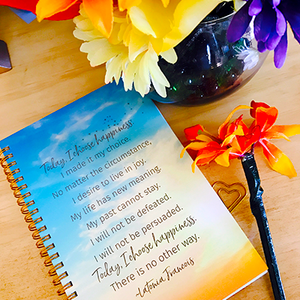 Today, I choose happiness
I made it my choice.
No matter the circumstance,
I desire to live in joy.
My life has new meaning.
My past cannot stay.
I will not be defeated.
I will not be persuaded.
Today, I choose happiness.
There is no other way.
-Latonia Francois